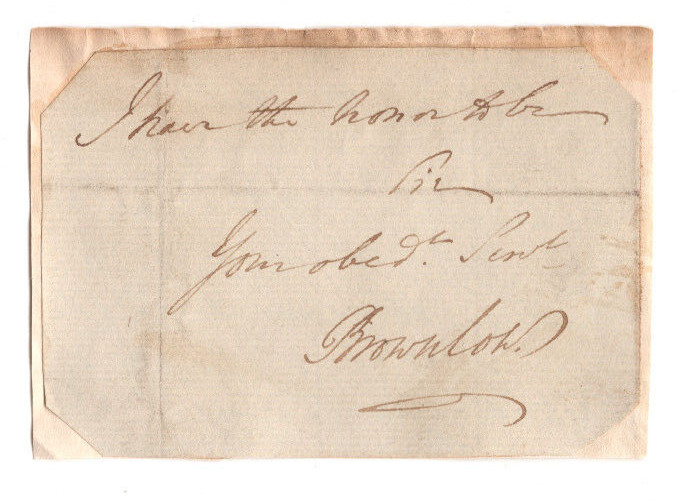 I have the honor to be
Sir
Your obedt. Servt.
Brownlow.